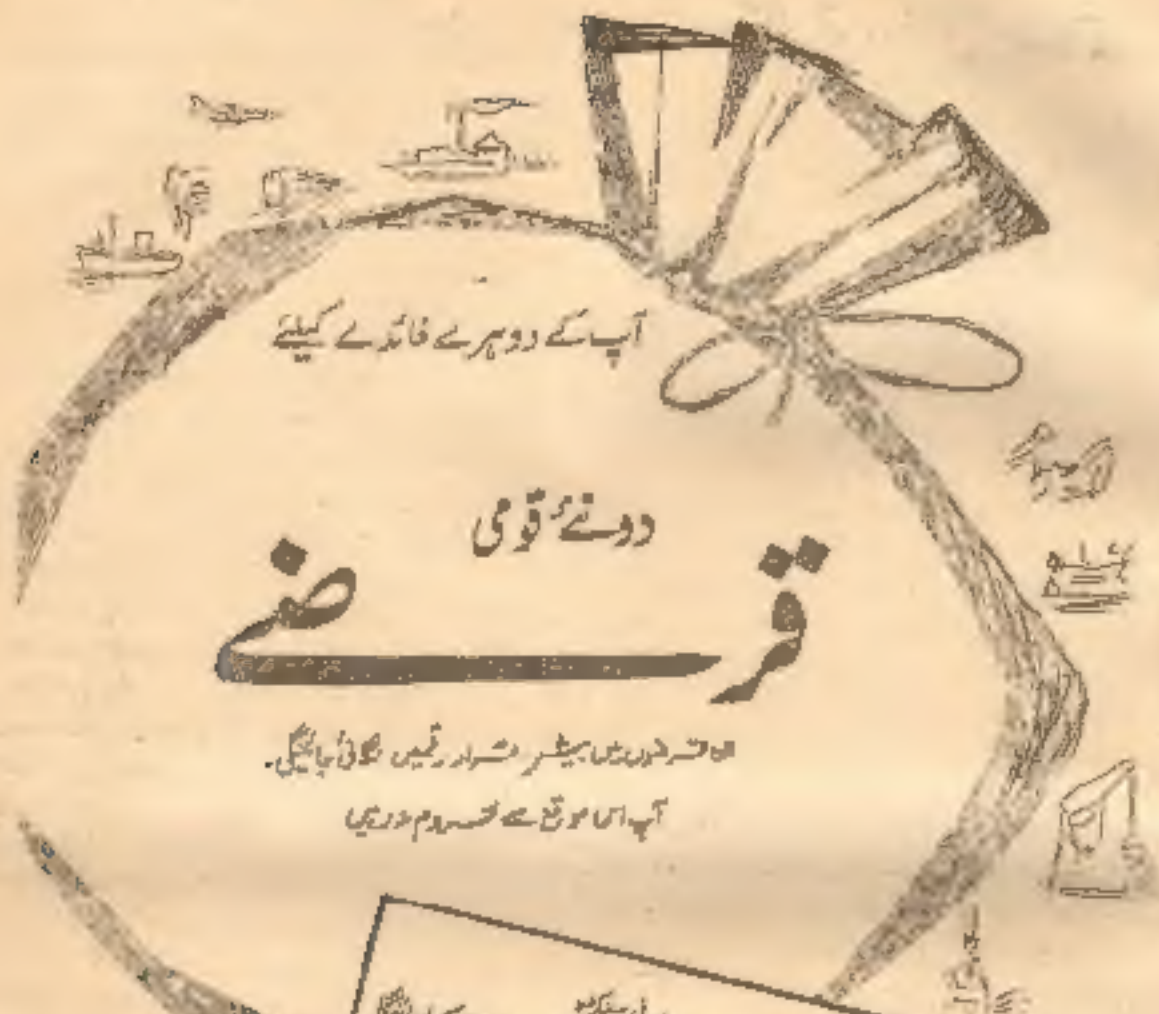 آپ کے دوہرے فائدے کیلئے
دو نئے قومی
قرضے
ان قرضوں میں بیشتر رقمیں لگائی جائینگی۔
آپ اس موقع سے محروم نہ رہیں